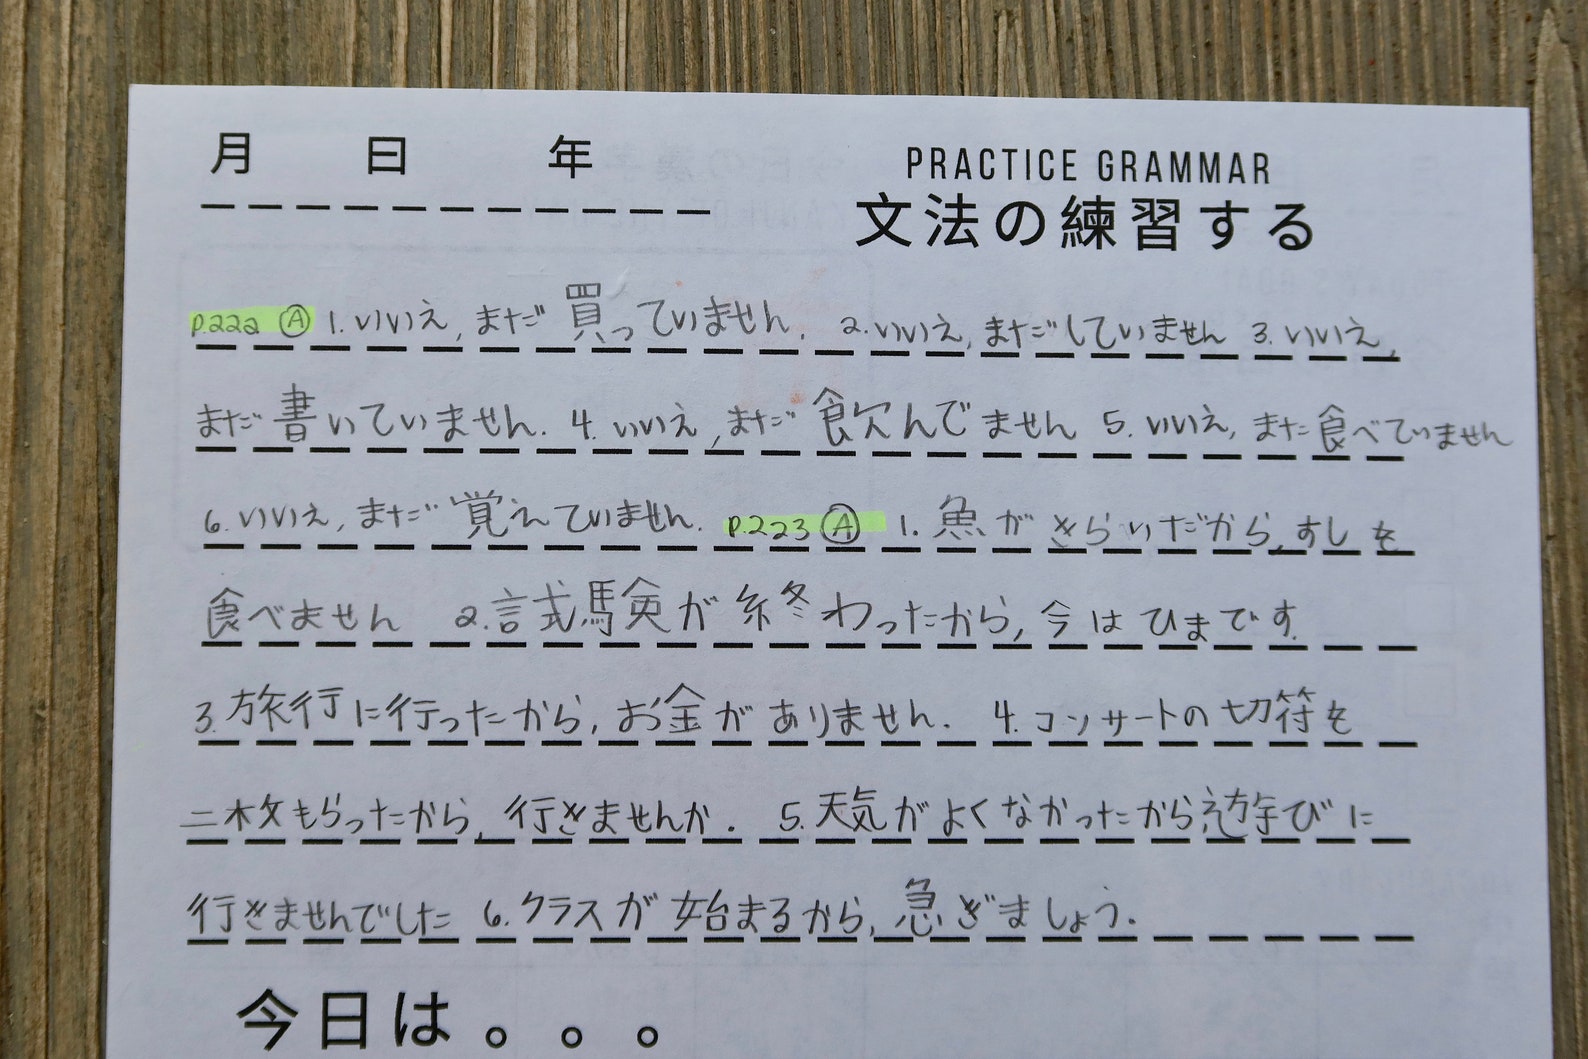 月 日 年
PRACTICE GRAMMAR
文法の練習する
p.222 Ⓐ 1. いいえ, まだ 買っていません. 2. いいえ, まだしていません 3. いいえ,
まだ 書いていません. 4. いいえ, まだ 飲んでません 5. いいえ, また食べていません
6. いいえ, まだ 覚えていません. p.223 Ⓐ 1. 魚が きらいだから, すしを
食べません 2. 試験が 終わったから, 今は ひまです.
3. 旅行に行ったから, お金が ありません. 4. コンサートの 切符を
二枚もらったから, 行きませんか. 5. 天気が よくなかったから遊びに
行きませんでした 6. クラスが 始まるから, 急ぎましょう.
今日は。。。